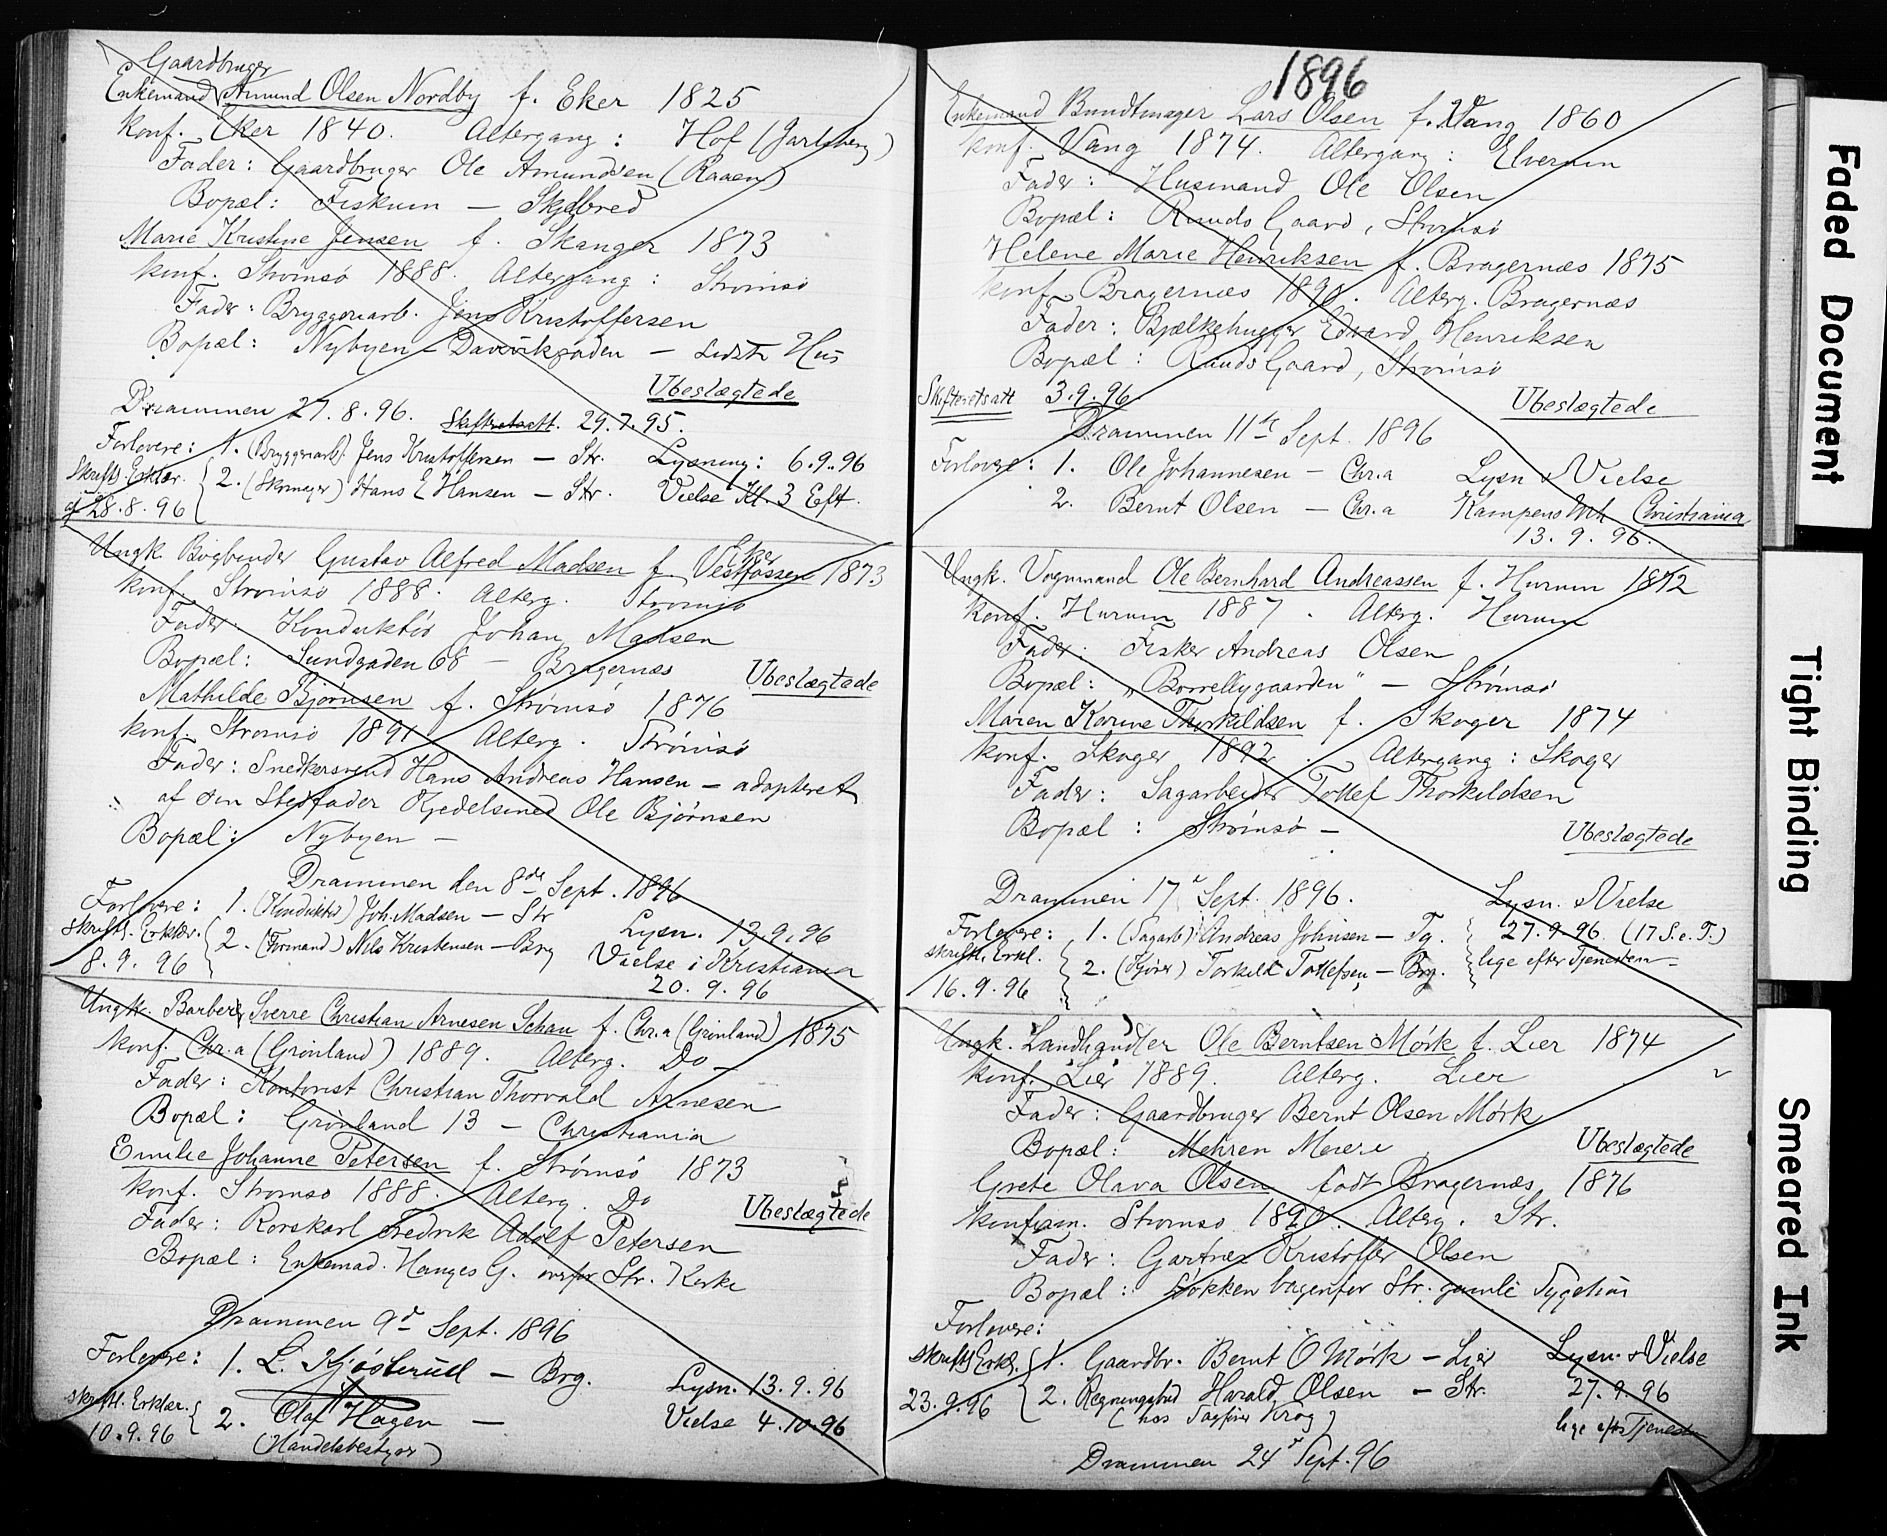 Gaardbruger
Enkemand Amund Olsen Nordby f. Eker 1825
konf. Eker 1840. Altergang: Hof (Jarlsberg)
Fader: Gaardbruger Ole Amundsen (Raaen)
Bopæl: Fiskum — Skjelbred
Marie Kristine Jensen f. Skanger 1873
konf. Strømsø 1888. Altergang: Strømsø
Fader: Bryggeriarb. Jens Kristoffersen
Bopæl: Nybyen — — sidste Hus
Ubeslægtede
Drammen 27.8.96. Skifteretsatt. 29.7.95.
Forlovere: 1. (Bryggeriarb.) Jens Kristoffersen — Str. Lysning: 6.9.96
Skriftl. Erklær. 2. (Skomager) Hans E Hansen — Str. Vielse Kl. 3 Eft.
af 28.8.96
Eker
Ungk. Bogbinder Gustav Alfred Madsen f. Vestfossen 1873
konf. Strømsø 1888. Alterg. Strømsø
Fader: Konduktør Johan Madsen
Bopæl: Sundgaden 68 — Bragernæs Ubeslægtede
Mathilde Bjørnsen f. Strømsø 1876
konf. Strømsø 1891 Alterg. Strømsø
Fader: Snedkersvend Hans Andreas Hansen — adopteret
af sin Stedfader Kjedelsmed Ole Bjørnsen
Bopæl: Nybyen —
Drammen den 8de Sept. 1896
Forlovere: 1. (Konduktør) Joh. Madsen — Str Lysn. 13.9.96
skriftl. Erklær. 2. (Formand) Nils Kristensen — Brg Vielse i Kristiania
8.9.96 20.9.96
Ungk. Barber Sverre Christian Arnesen Schau f. Chr.a (Grønland) 1875
konf. Chr.a (Grønland) 1889. Alterg. Do —
Fader: Kontorist Christian Thorvald Arnesen
Bopæl: Grønland 13 — Christiania
Emilie Johanne Petersen f. Strømsø 1873
konf. Strømsø 1888. Alterg. Do
Ubeslægtede
Fader: Rorskarl Fredrik Adolf Petersen
Bopæl: Enkemad. Hanges G. overfor Str. Kirke
Drammen 9d Sept. 1896
Forlovere: 1. L. Kjøsterud — Brg. Lysn. 13.9.96
skriftl. Erklær. 2. Olaf Hagen — Vielse 4.10.96
10.9.96 (Handelsbestyrer)
1896
Enkemand Bundtmager Lars Olsen f. Vang 1860
konf. Vang 1874. Altergang: Elverum
Fader: Husmand Ole Olsen
Bopæl: Ruuds Gaard, Strømsø
Helene Marie Henriksen f. Bragernæs 1875
konf. Bragernæs 1890. Alterg. Bragernæs
Fader: Bjælkehugger Edvard Henriksen
Bopæl: Ruuds Gaard, Strømsø
Skifteretsatt 3.9.96. Ubeslægtede
Drammen 11te Sept. 1896
Forlovere: 1. Ole Johannesen — Chr.a Lysn & Vielse
2. Bernt Olsen — Chr.a Kampens Mh Christiania
13.9.96.
Ungk. Vognmand Ole Bernhard Andreassen f. Hurum 1872
konf. Hurum 1887. Alterg. Hurum
Fader: Fisker Andreas Olsen
Bopæl: „Borrebygaarden" — Strømsø
Maren Karine Thorkildsen f. Skoger 1874
konf. Skoger 1892. Altergang: Skoger
Fader: Sagarbeider Tollef Thorkildsen
Bopæl: Strømsø —
Ubeslægtede
Drammen 17d Sept. 1896. Lysn. & Vielse
Forlovere: 1. (Sagarb.) Andreas Johnsen — Tg. 27.9.96 (17 S. e. T.)
skriftl. Erkl. 2. (Kjører) Torkild Tollefsen — Brg. lige efter Tjenesten —
16.9.96
Ungk. Landhandler Ole Berntsen Mørk f. Lier 1874
konf. Lier 1889. Alterg. Lier
Fader: Gaardbruger Bernt Olsen Mørk
Bopæl: Mehren Meieri Ubeslægtede
Grete Olava Olsen født Bragernæs 1876
konfirm. Strømsø 1890. Alterg. Str.
Fader: Gartner Kristoffer Olsen
Bopæl: Løkken bagenfor Str. gamle Sygehus
Forlovere:
skriftl Erkl. 1. Gaardbr. Bernt O Mørk — Lier Lysn. & Vielse
23.9.96 2. Regningsbud Harald Olsen — Str. 27.9.96
(hos Sagfører Krog) lige efter Tjenesten
Drammen 24d Sept. 96
Faded Document
Tight Binding
Smeared Ink